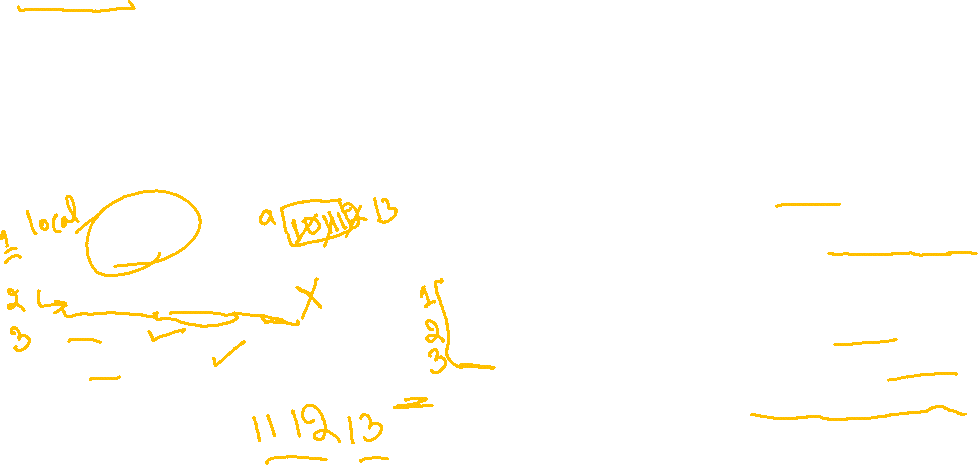 local
a 10 11 12 13
1
2
3
X
1
2
3
11 12 13